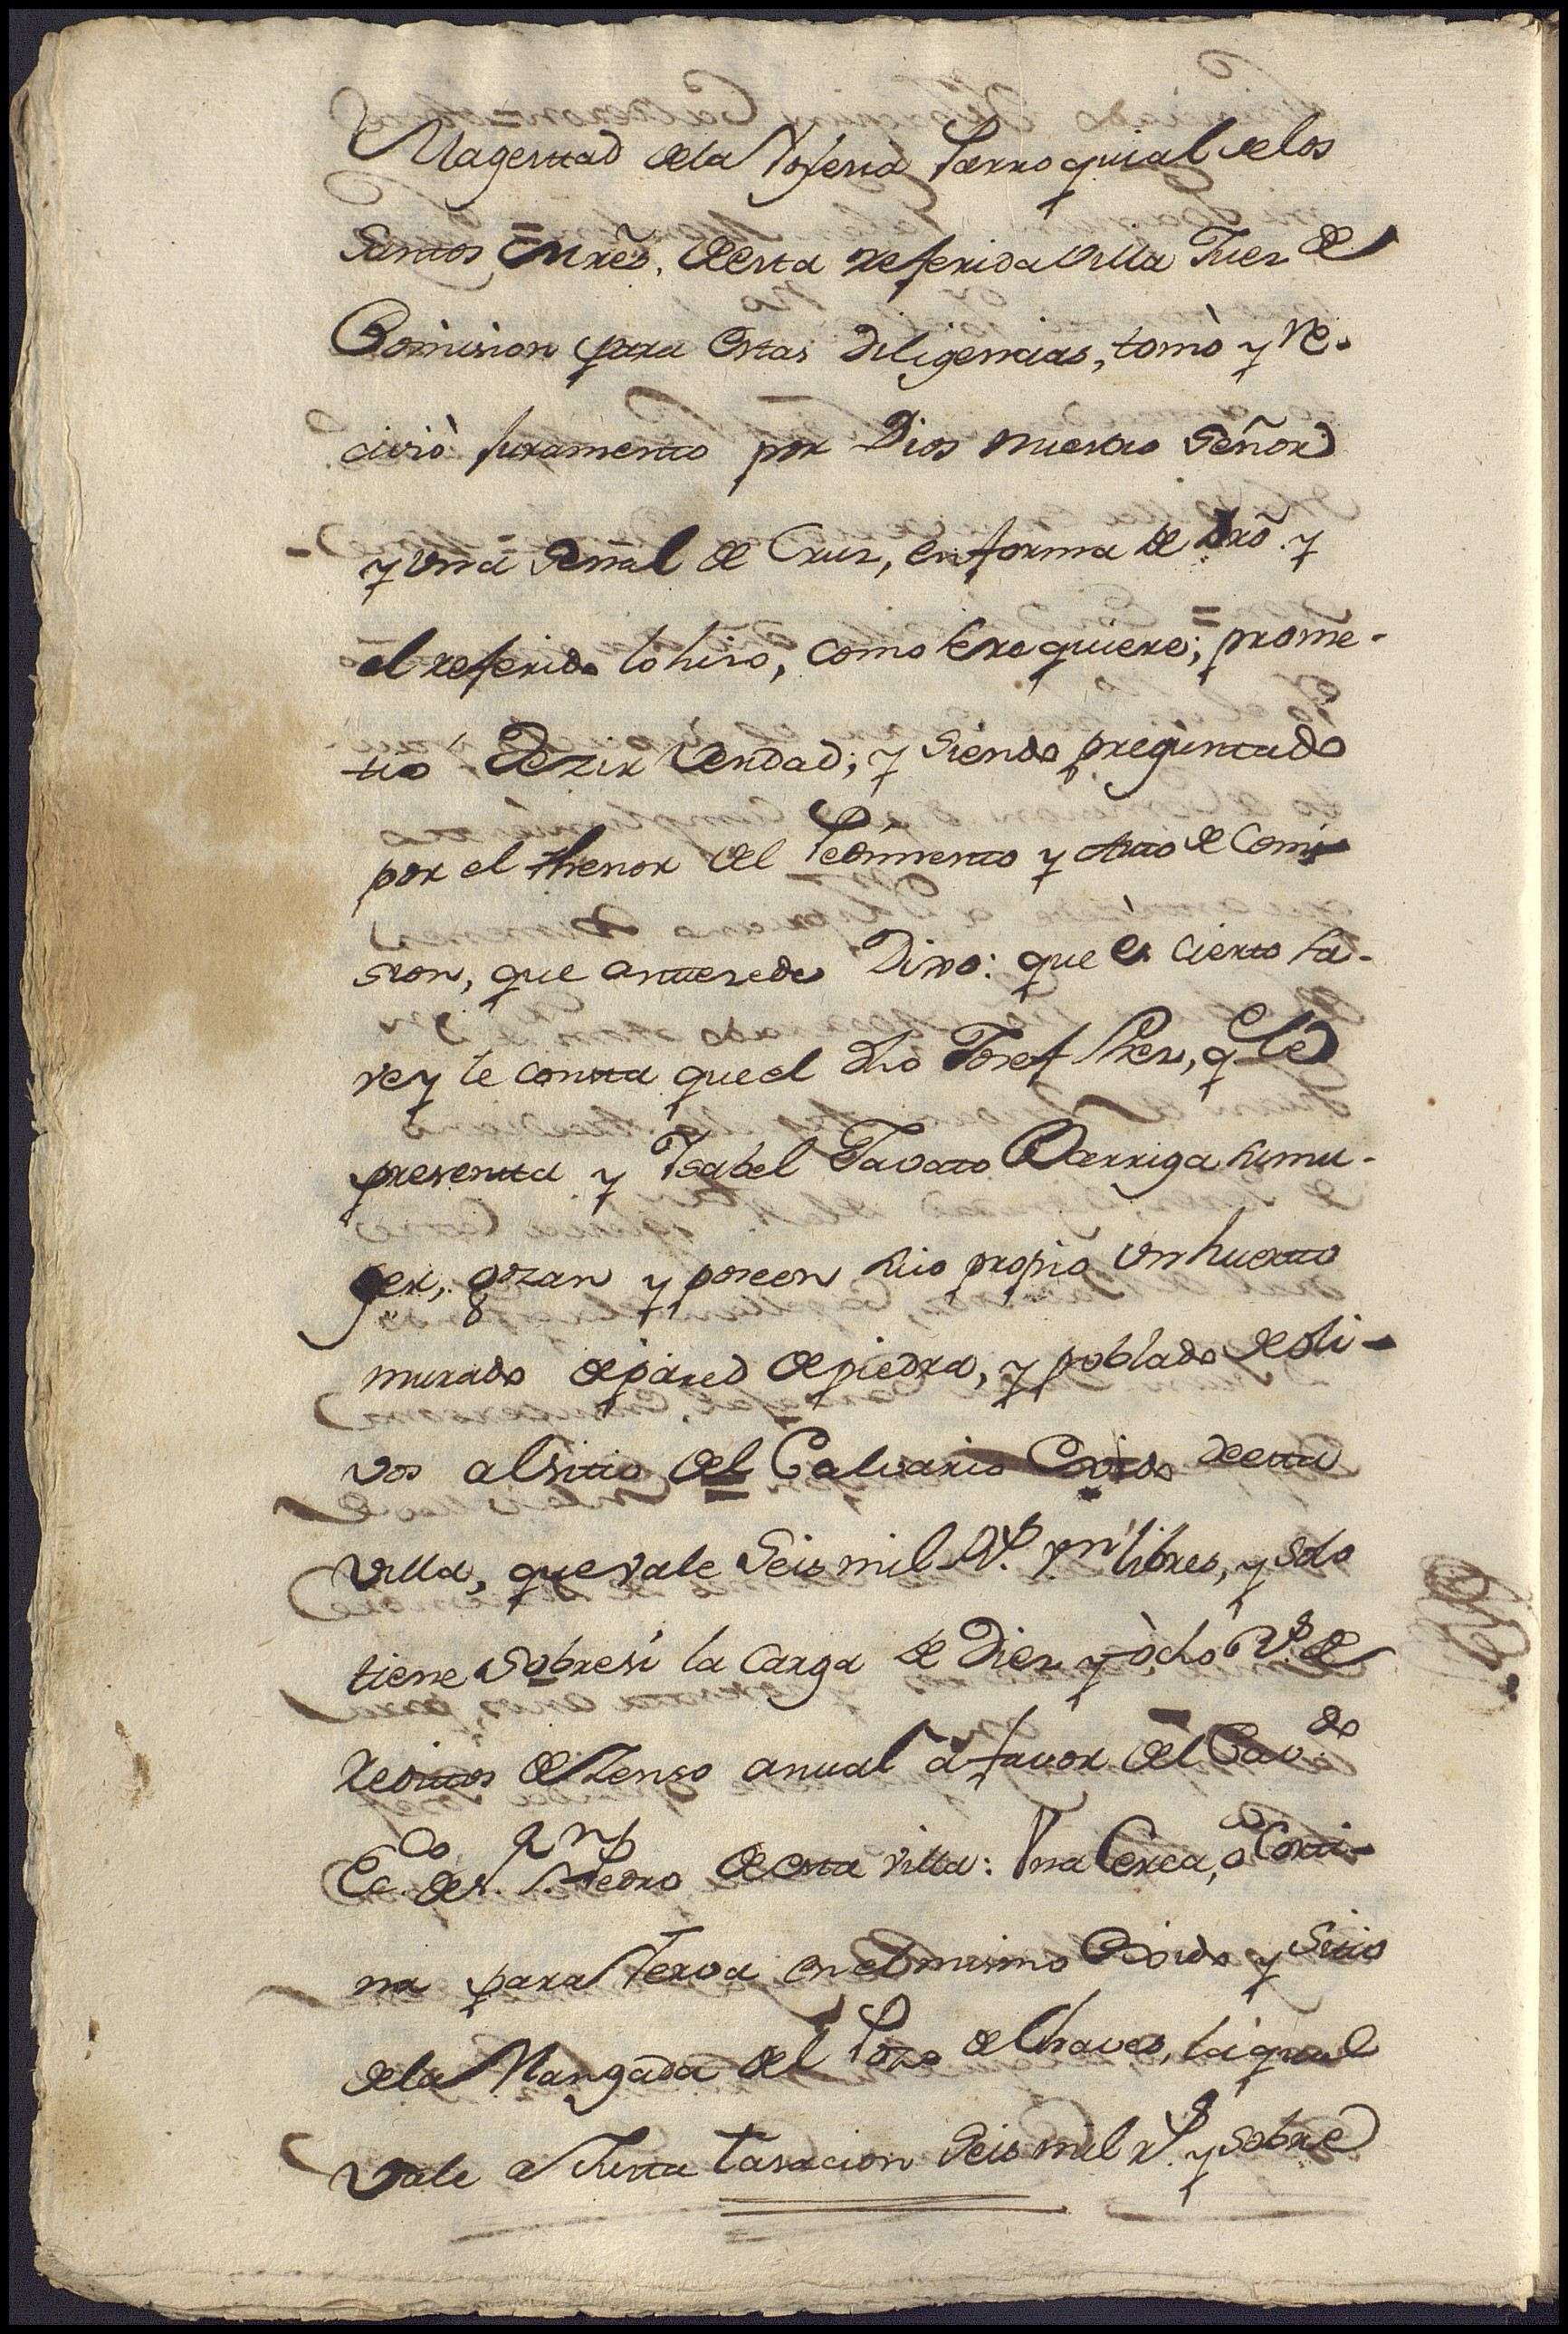 Magestad dela Yglesia Parroquial de los
Santos Mrẽs. de esta referida villa Juez de
Comision para estas diligencias, tomò y re-
civiò juramento por Dios nuestro Señor
y una Señal de Cruz, en forma de dr̃o. y
el referido lo hizo, como se requiere; prome-
tiò dezir verdad; y siendo preguntado
por el thenor del Pedimento y auto de Comi-
sion, que antezede Dixo: que es cierto sa-
ve y le consta que el dho Josef Perz, q. le
presenta y Ysabel Tavato Barriga su mu-
ger, gozan y poseen suio propio un huerto
murado de pared de piedra, y poblado de oli-
vos al sitio del Calvario Exido de esta
villa, que vale Seis mil Rs. vn. libres, y solo
tiene sobre sì la carga de Diez y òcho Rs. de
reditos de Zenso anual à favor del Cav.do
Ec.co de Sr. S. Pedro de esta villa: Una Cerca, o Corti-
na para Yerva en el mismo Exido y Sitio
dela Mangada del Pozo de Chaves, la qual
vale a Justa tasacion Seis mil Rs. y sobre